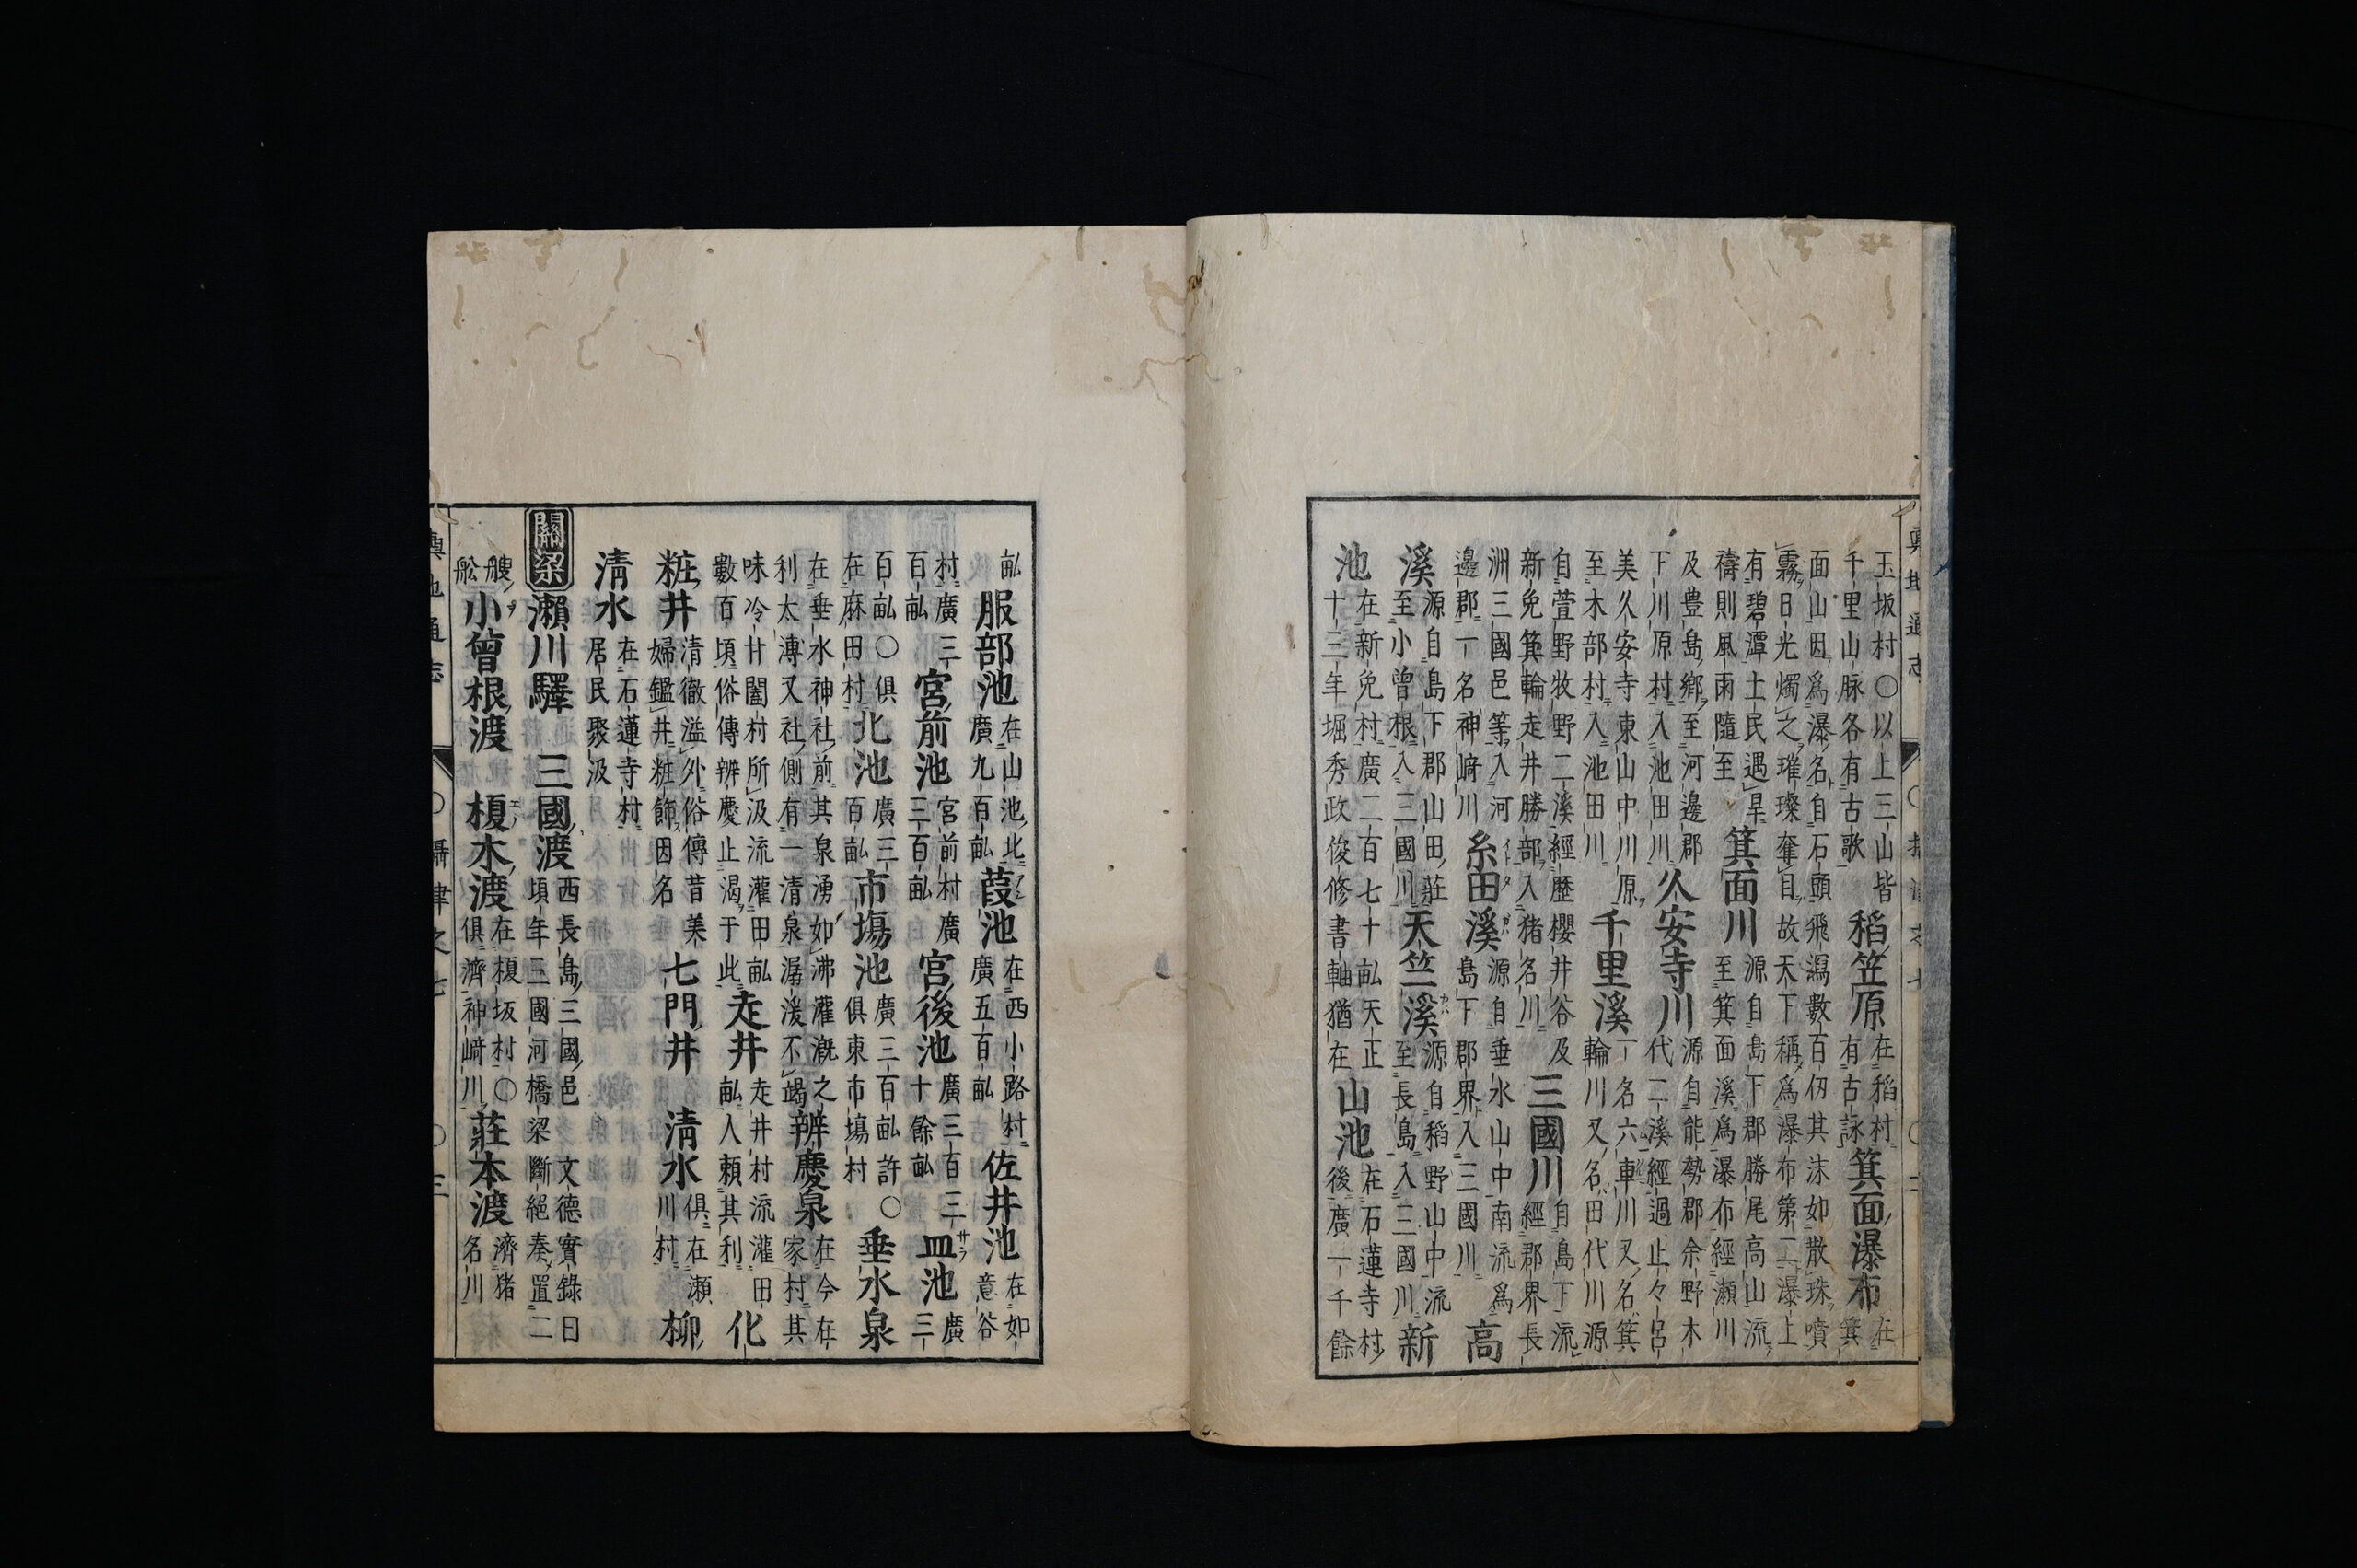 輿地通志 ○攝津之七
玉坂村○以上三山皆千里山脉各有古歌 稻笠原 在稻村有古詠 箕面瀑布 在箕
面山因爲瀑名自石頭飛瀉數百仞其沫如散珠噴霧日光燭之璀璨奪目故天下稱爲瀑布第二瀑上
有碧潭土民遇旱禱則風雨隨至 箕面川 源自島下郡勝尾高山流至箕面溪爲瀑布經瀬川
及豊島鄉至河邊郡下川原村入池田川 久安寺川 源自能勢郡余野木代二溪經過止々呂
美久安寺東山中川原至木部村入池田川 千里溪 一名六車川又名箕輪川又名田代川源
自萱野牧野二溪經歷櫻井谷及新免箕輪走井勝部入猪名川 三國川 自島下流經郡界長
洲三國邑等入河邊郡一名神﨑川 糸田溪 源自垂水山中南流爲島下郡界入三國川 高
溪 源自島下郡山田莊至小曾根入三國川 天竺溪 源自稻野山中流至長島入三國川 新
池 在新免村廣二百七十畒天正十三年堀秀政俊修書軸猶在 山池 在石蓮寺村後廣一千餘
畒 服部池 在山池北廣九百畒 葭池 在西小路村廣五百畒 佐井池 在如意谷
村廣三百畒 宮前池 宮前村廣三百畒 宮後池 廣三百三十餘畒 皿池 廣三
百畒○俱在麻田村 北池 廣三百畒 市塲池 廣三百畒許○俱東市塲村 垂水泉
在垂水神社前其泉湧如沸灌漑之利太溥又社側有一清泉潺湲不竭 辨慶泉 在今在家村其
味冷甘闔村所汲流灌田畒數百頃俗傳辨慶止渴于此 走井 走井村流灌田畒人頼其利 化
粧井 清徹溢外俗傳昔美婦鑑井粧飾因名 七門井 清水 俱在瀬川村 柳
清水 在石蓮寺村居民聚汲
關梁 瀬川驛 三國渡 西長島三國邑 文德實錄曰頃年三國河橋梁斷絕奏置二
艘舩 小曾根渡 榎木渡 在榎坂村○俱濟神﨑川 莊本渡 濟猪名川
輿地通志 ○攝津之七 ○三